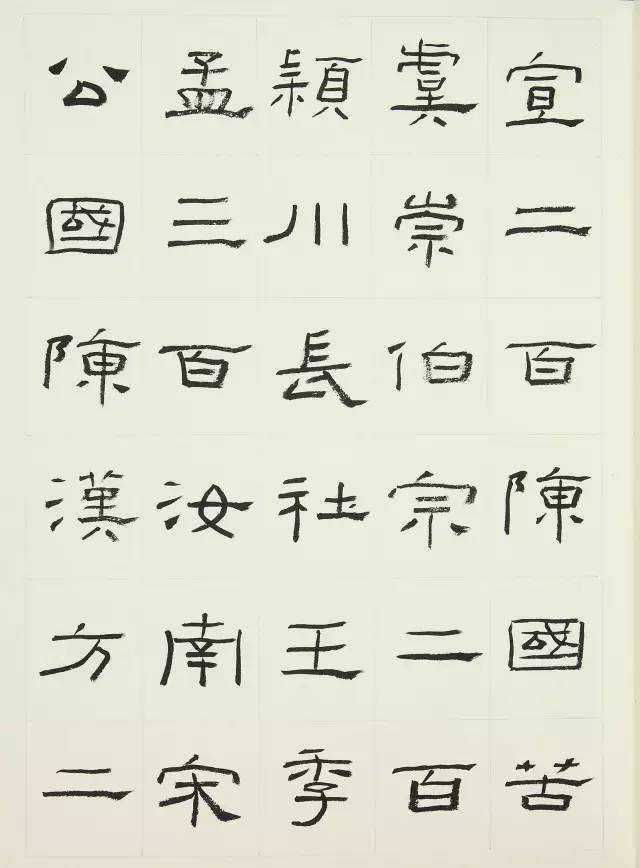 宣二百陳國苦
虞崇伯宗二百
穎川長社王季
孟三百汝南宋
公國陳漢方二